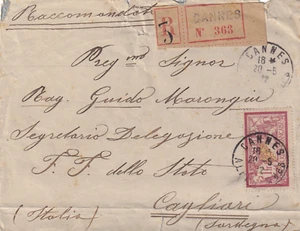 Raccomandata
R CANNES
N° 363
5
CANNES
18 *
20-5
Preg mo Signor
Rag. Guido Marongiu
Segretario Delegazione
F. F. dello Stato
CANNES
18
20-5
Cagliari
(Italia) (Sardegna)